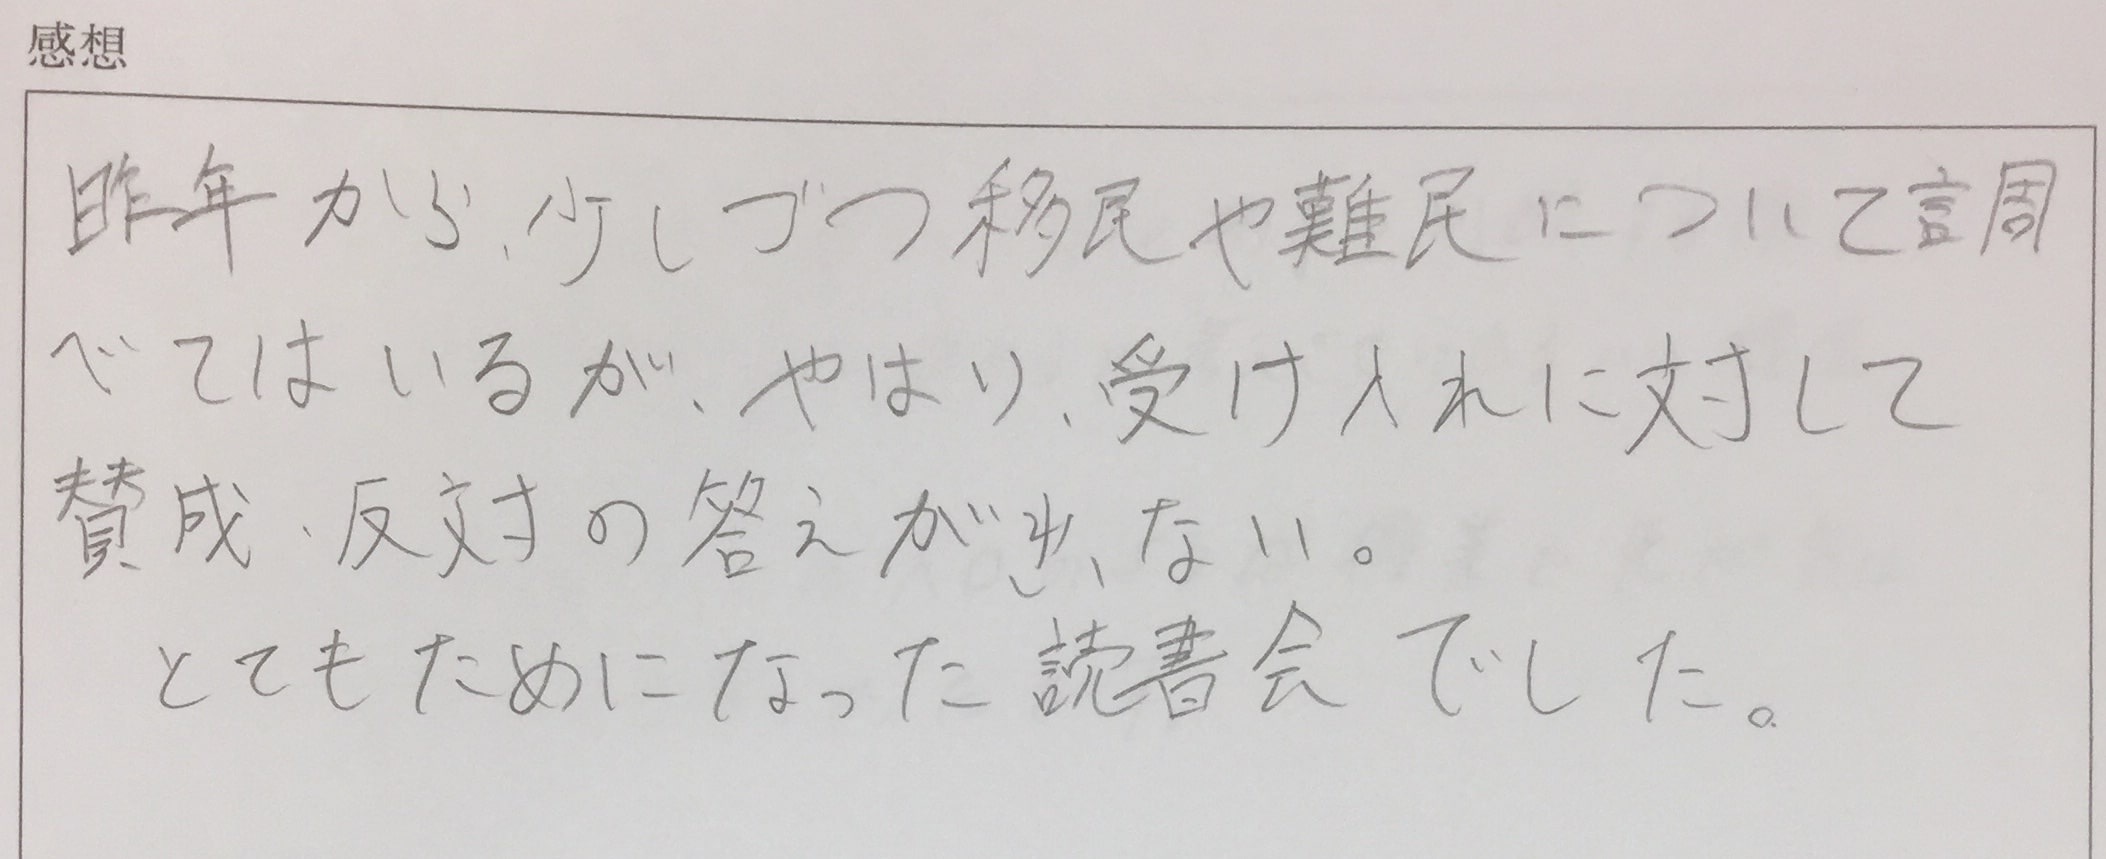 感想
昨年から、少しづつ移民や難民について調
べてはいるが、やはり、受け入れに対して
賛成・反対の答えが出ない。
とてもためになった読書会でした。